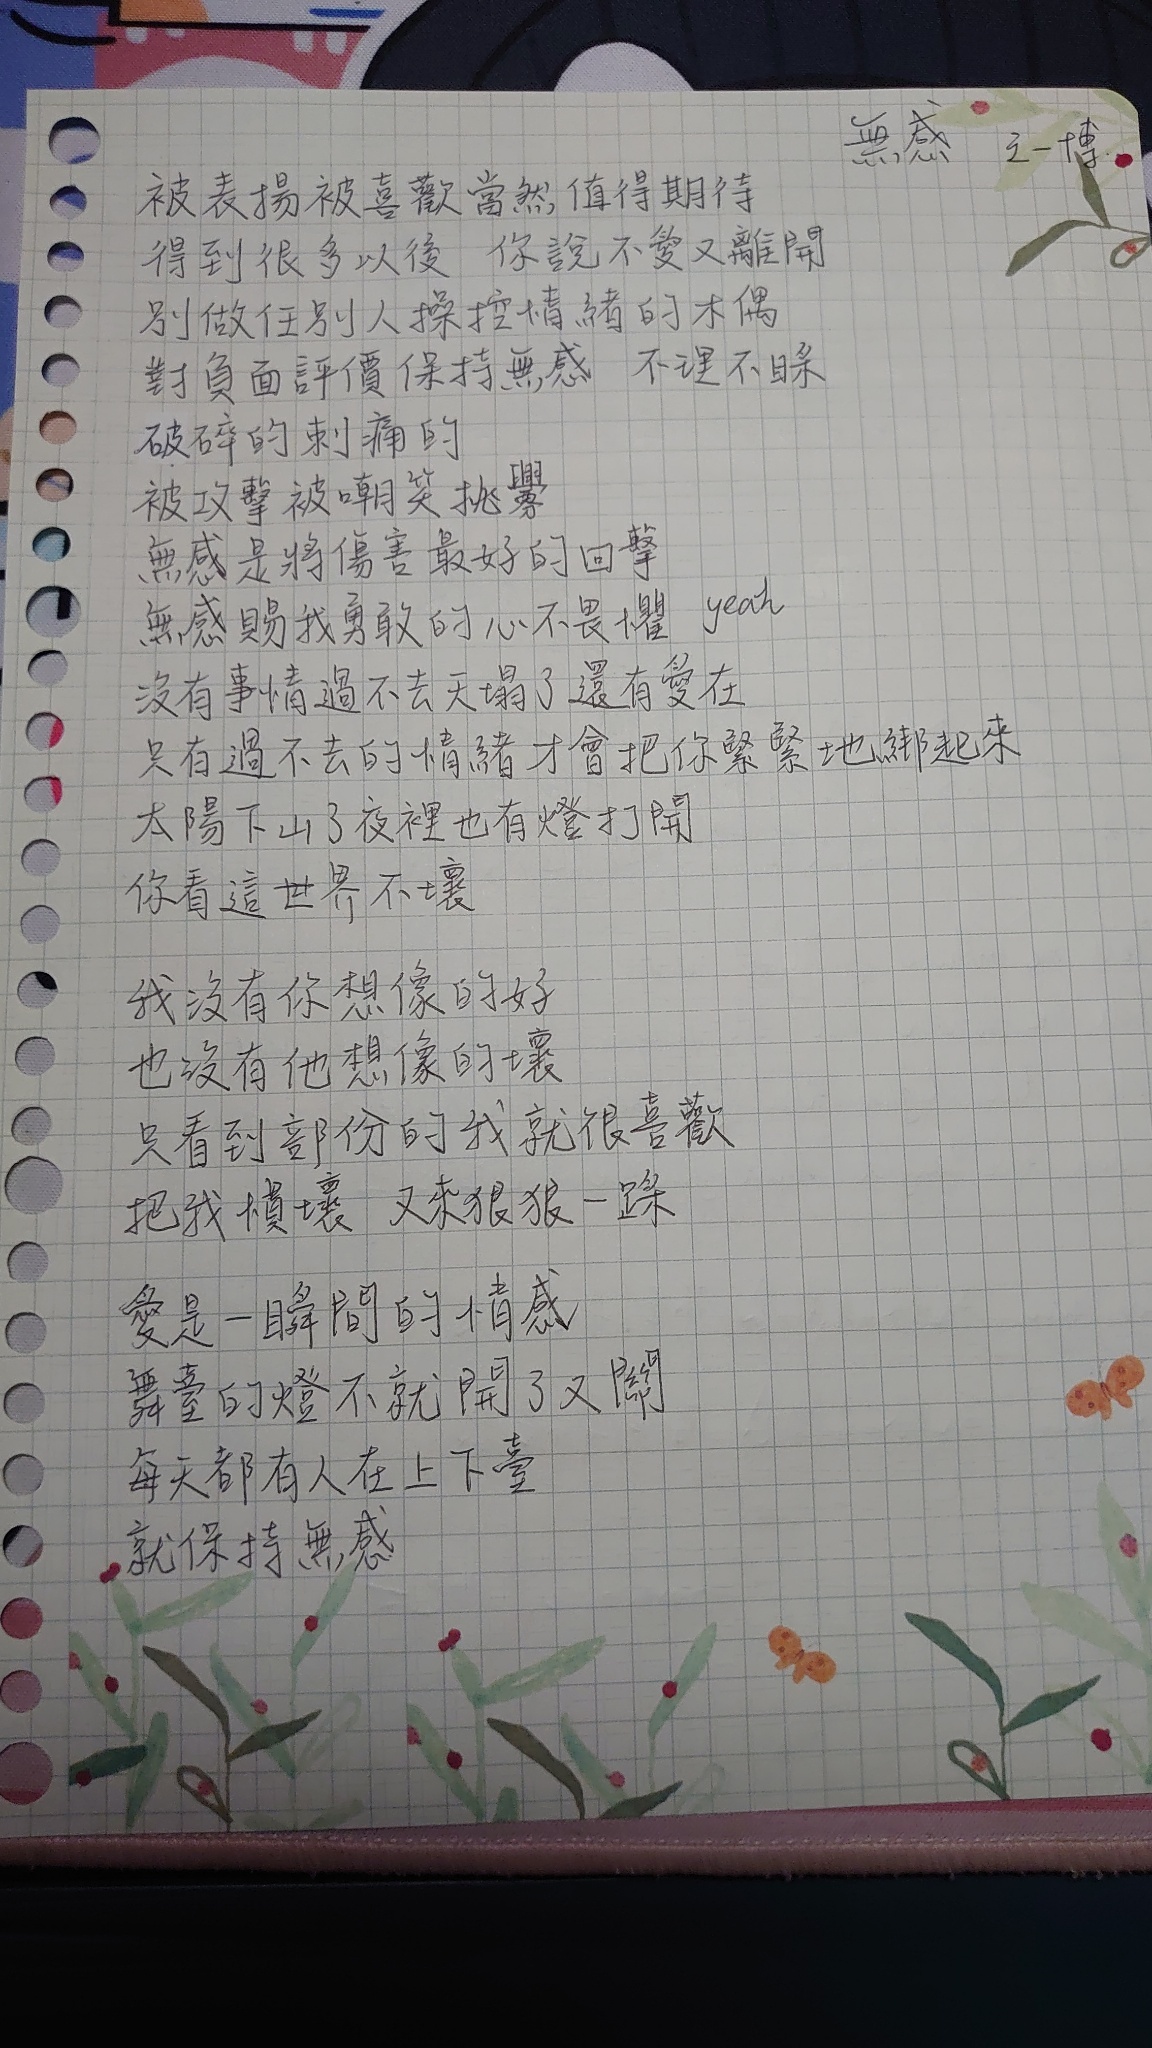 無感 王一博
被表揚被喜歡當然值得期待
得到很多以後 你說不愛又離開
別做任別人操控情緒的木偶
對負面評價保持無感 不理不睬
破碎的刺痛的
被攻擊被嘲笑挑釁
無感是將傷害最好的回擊
無感賜我勇敢的心不畏懼 yeah
沒有事情過不去天塌了還有愛在
只有過不去的情緒才會把你緊緊地綁起來
太陽下山了夜裡也有燈打開
你看這世界不壞
我沒有你想像的好
也沒有他想像的壞
只看到部份的我就很喜歡
把我慣壞 又來狠狠一踩
愛是一瞬間的情感
舞臺的燈不就開了又關
每天都有人在上下臺
就保持無感